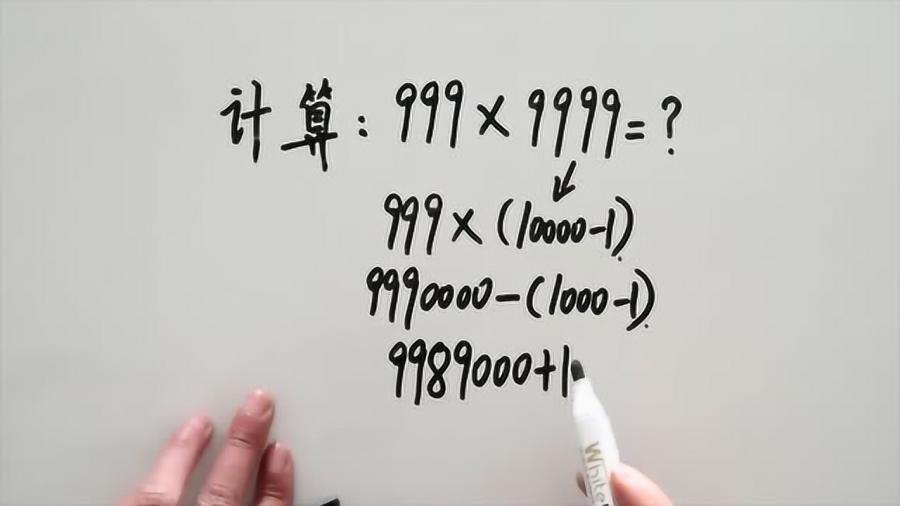 计算：999×9999=?
999×(10000-1)
9990000-(1000-1)
9989000+1
White